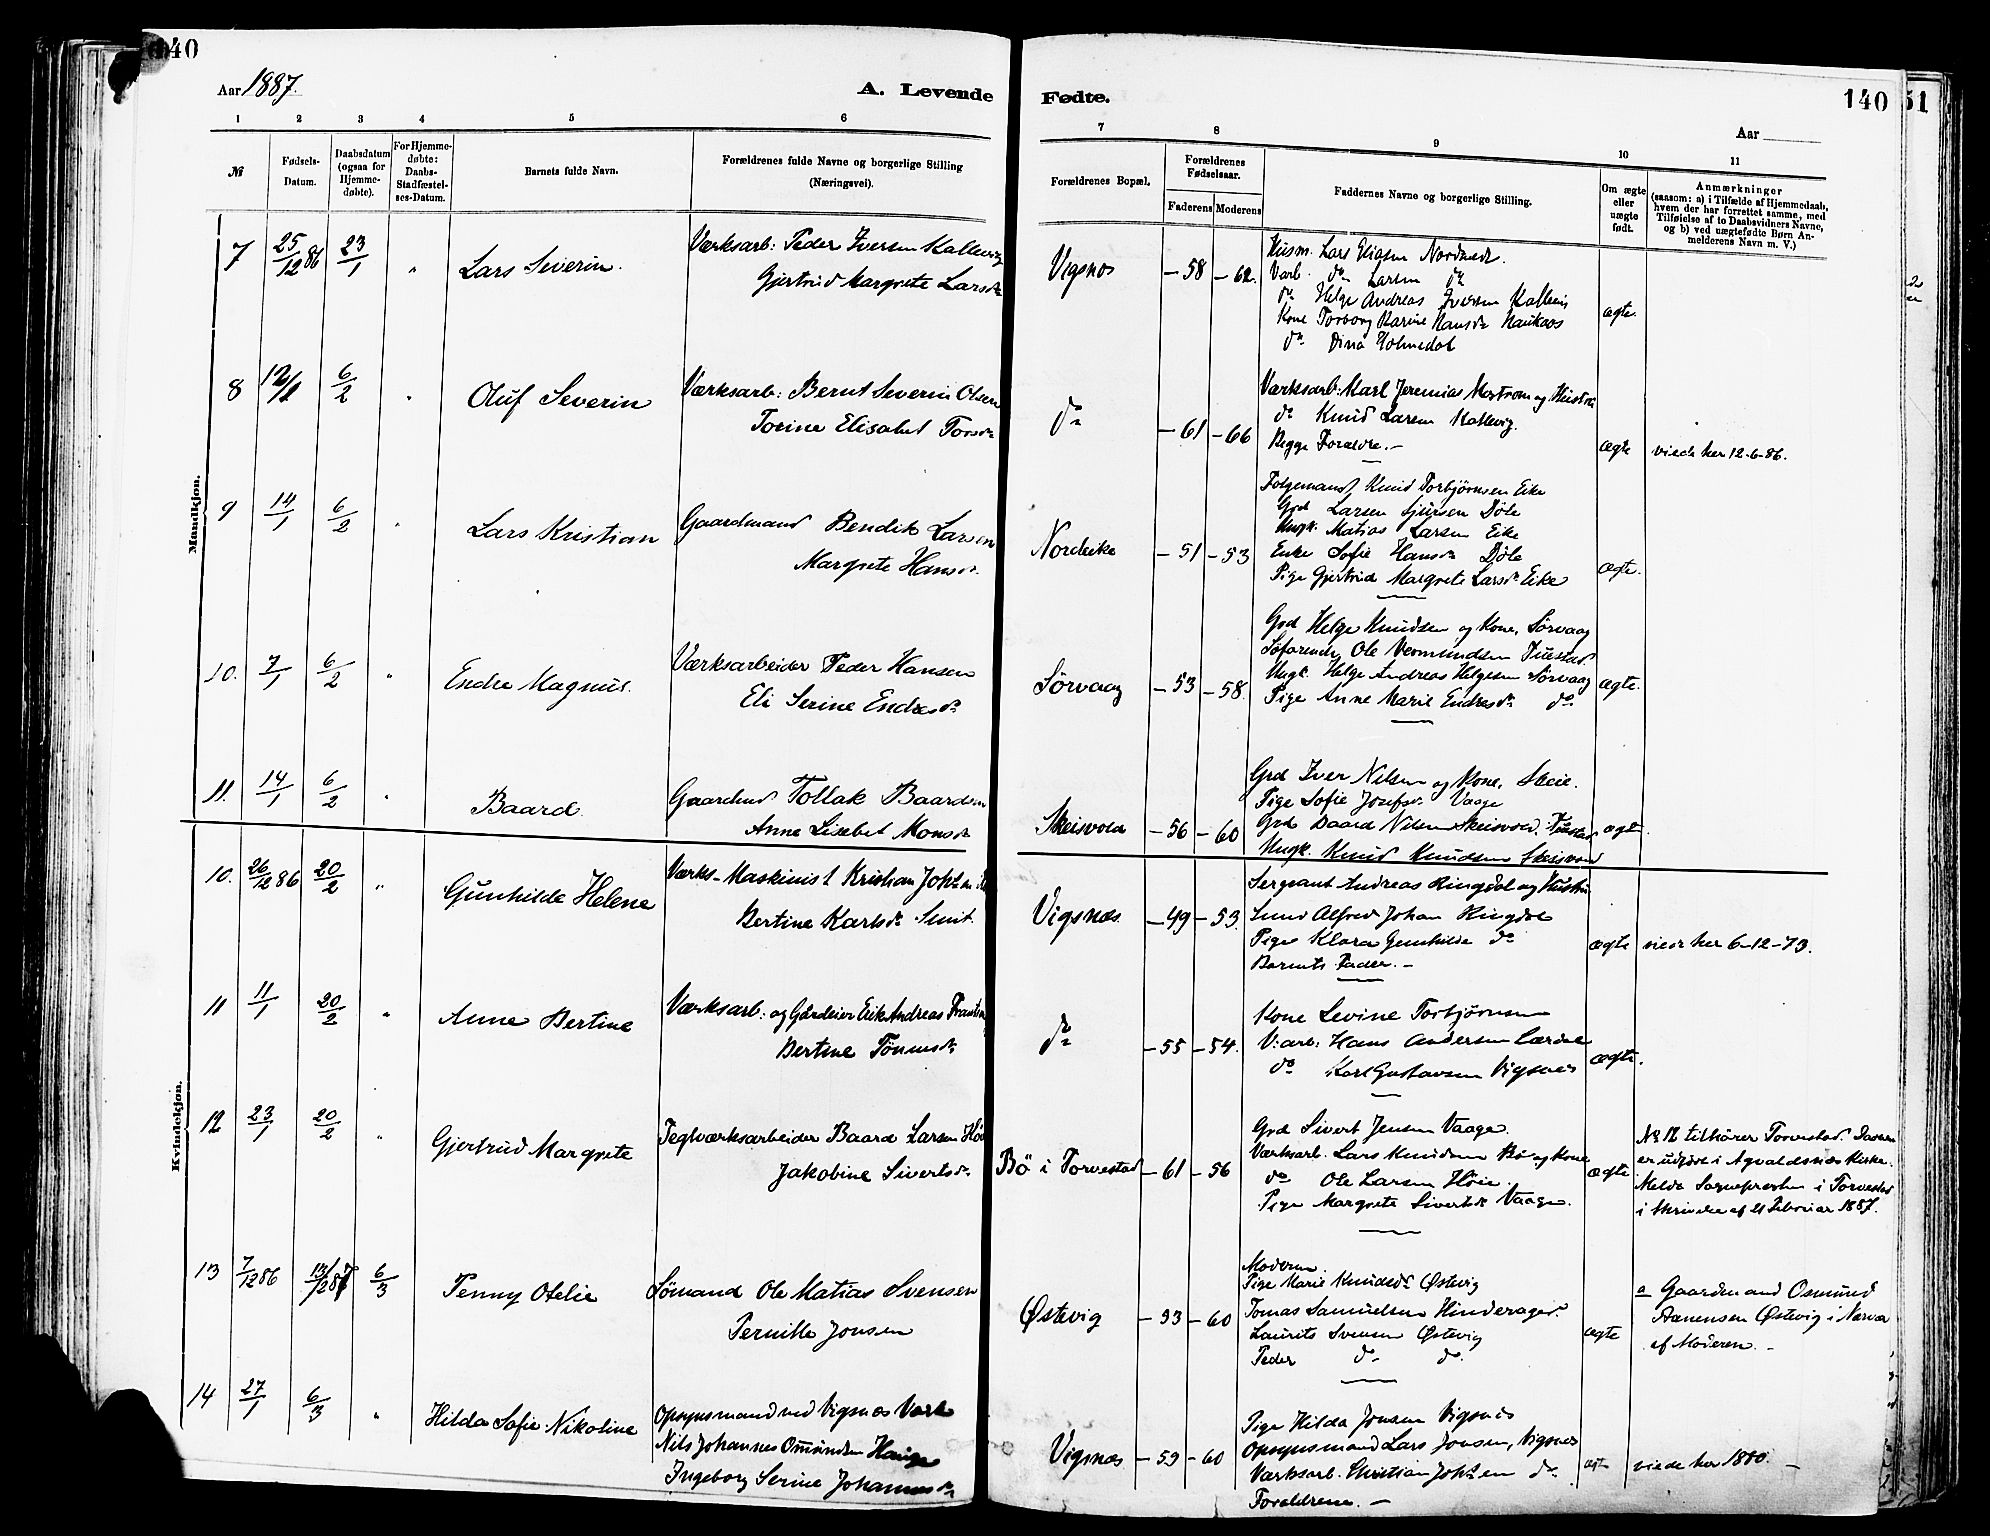 140
Aar 1887.
A. Levende
Fødte.
140
51
Aar
1 2 3 4 5 6
7 8 9 10 11
№
Fødsels-
Datum.
Daabsdatum
(ogsaa for
Hjemme-
døbte).
For Hjemme-
døbte:
Daabs-
Stadfæstel-
ses-Datum.
Barnets fulde Navn.
Forældrenes fulde Navne og borgerlige Stilling
(Næringsvei).
Forældrenes Bopæl.
Forældrenes
Fødselsaar.
Faderens Moderens
Faddernes Navne og borgerlige Stilling.
Om ægte
eller
uægte
født.
Anmærkninger
(saasom: a) i Tilfælde af Hjemmedaab,
hvem der har forrettet samme, med
Tilføielse af to Daabsvidners Navne,
og b) ved uægtefødte Børn An-
melderens Navn m. V.)
Mandkjøn.
7 25/12 86 23/1 "
Lars Severin.
Værksarb: Peder Iversen Kallevig
Gjertrud Margrete Larsdr
Vigsnæs
-58 -62.
Husm. Lars
Varb. do Larsen do
do Helge Andreas Iversen
Kone Torborg Karine Hansdr
do Dina Holmedal
ægte.
8 12/1 6/2 "
Oluf Severin
Værksarb: Bernt Severin Olsen
Torine Elisabet Torsdr
do
-61 -66
Værksarb: Karl Jeremias og Hustru
do Knud Larsen Kallevig.
Begge Forældre. -
ægte
viede her 12-6-86.
9 14/1 6/2 "
Lars Kristian
Gaardmand Bendik Larsen
Margrete Hansdr.
Nordeike
-51 -53
Folgemand Knud Torbjørnsen Eike
Grd Larsen Sjursen Døle
Ungk. Matias Larsen Eike
Enke Sofie Hansdr Døle
Pige Gjertrud Margrete Larsdr Eike
ægte.
10. 7/1 6/2 "
Endre Magnus.
Værksarbeider Peder Hansen
Eli Serine Endresdr
Sørvaag
-53 -58.
Grd Helge Knudsen og Kone, Sørvaag
Søfarende Ole Vermundsen
Ungk. Helge Andreas Helgesen Sørvaag
Pige Anne Marie Endresdr do
ægte.
11. 14/1 6/2 "
Baard.
Gaardmd Tollak Baardsen
Anne Lisebet Monsdr
Skeisvold
-56 -60
Grd Iver Nilsen og Kone, Skeie.
Pige Sofie Josefsdr Vaage
Grd Baard Nilsen Skeisvold.
Ungk. Knud Knudsen Skeisvold
ægte
Kvindekjøn.
10. 26/12 86 20/2 "
Gunhilde Helene
Værks-Maskinist Kristian
Bertine Karlsdr Smit.
Vigsnæs.
-49 -53.
Sergeant Andreas Ringdal og Hustru
Smed Alfred Johan Ringdal
Pige Klara Gunhilde do
Barnets Fader. -
ægte
viede her 6-12-73.
11 11/1 20/2 "
Anne Bertine
Værksarb: og Gårdeier Erik Andreas
Bertine Tønnesdr
do
-55 -54.
Kone Levine Torbjørnsen
V:arb: Hans Andersen
do Karl Gustavsen Vigsnæs
ægte.
12 23/1 20/2 "
Gjertrud Margrete
Teglværksarbeider Baard Larsen
Jakobine Sivertsdr
Bö i Torvestad
-61 -56
Grd Sivert Jensen Vaage.
Værksarb. Lars Knudsen Bö og Kone
do Ole Larsen Höie.
Pige Margrete Sivertsdr Vaage.
ægte
No 12 tilhører Torvestad. Daaben
er udført i Agvaldsnæs Kirke.
Melde Sognepresten i Torvestad
i Skrivelse af 21 Februar 1887.
13 7/12 86 6/3
Penny Otelie
Sømand Ole Matias Svensen
Pernille Jonsen
Østevig
-53 -60
Moderen.
Pige Marie Knudsdr Østevig
Tomas Samuelsen Hinderager.
Laurits Svensen Østevig
Peder do do.
ægte
a Gaardmand Osmund
Aanensen Østevig i Nærvær
af Moderen. -
14 27/1 6/3 "
Hilda Sofie Nikoline
Opsynsmand ved Vigsnæs Værk
Nils Johannes Omundsen Hauge
Ingeborg Serine Johannesdr
Vigsnæs
-59 -60
Pige Hilda Jonsen Vigsnæs
Opsynsmand Lars Jonsen, Vigsnæs
Værksarb. Christian do
Forældrene. -
ægte
viede her 1880. -